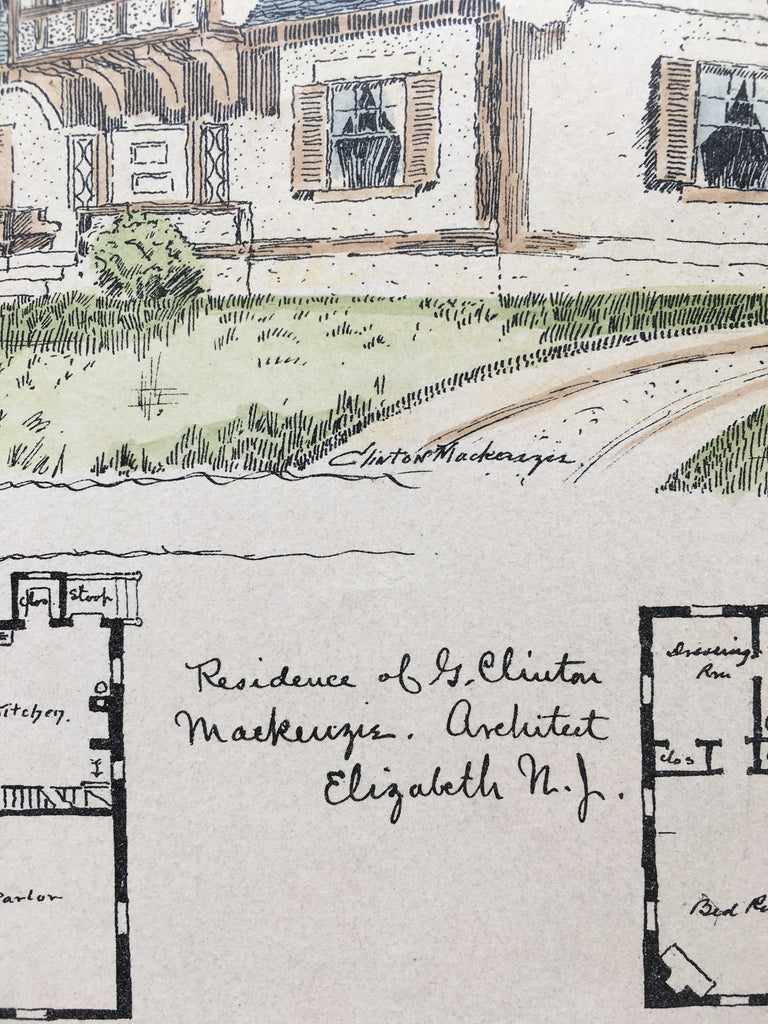 Clinton Mackenzie
Clos
Stoop
Kitchen.
Parlor
Residence of G. Clinton
Mackenzie. Architect
Elizabeth N.J.
Dressing
Rm
Clos
Bed